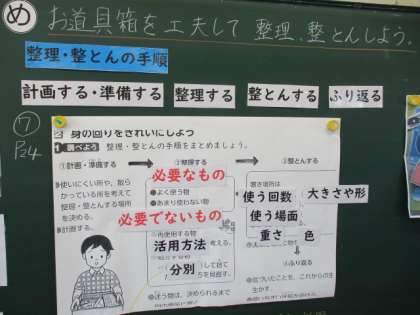 め お道具箱を工夫して整理、整とんしよう。
整理・整とんの手順
計画する・準備する 整理する 整とんする ふり返る
⑦
P24
2 身の回りをきれいにしよう
1 調べよう 整理・整とんの手順をまとめましょう。
①計画・準備する ②整理する ③整とんする
必要なもの
●よく使う物
●あまり使わない物
必要でないもの
使いにくい所や、散ら
かっている所を考えて
整理・整とんする場所
を決める。
計画する。
置き場所は
使う回数 大きさや形
使う場面
重さ 色
再使用する物
活用方法 考える。
分別 して捨て
④ふり返る
迷う物は、決められるまで
気づいたことを、これからの生